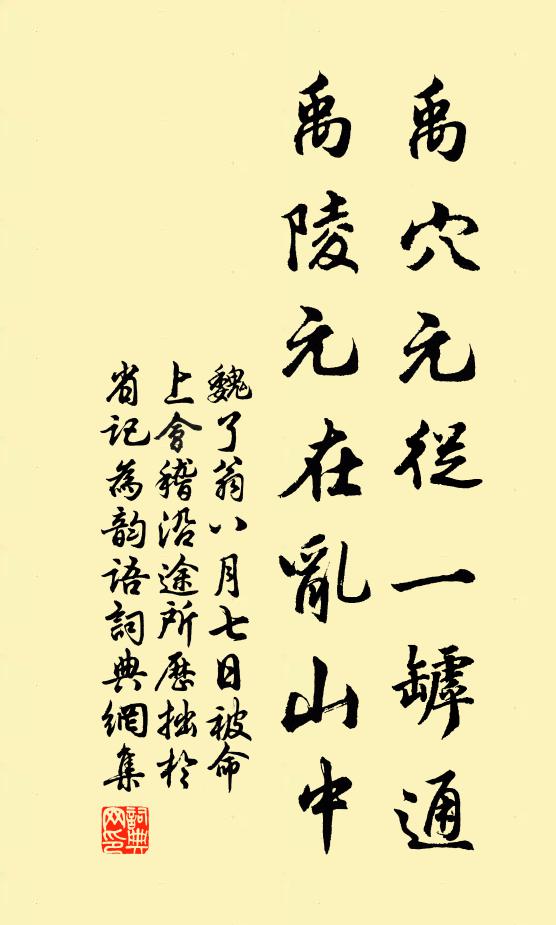 禹穴元從一罅通
禹陵元在亂山中
魏了翁八月七日被命
上會稽沿途所歷拙於
省記為韵語詞典網集
詞典
网印